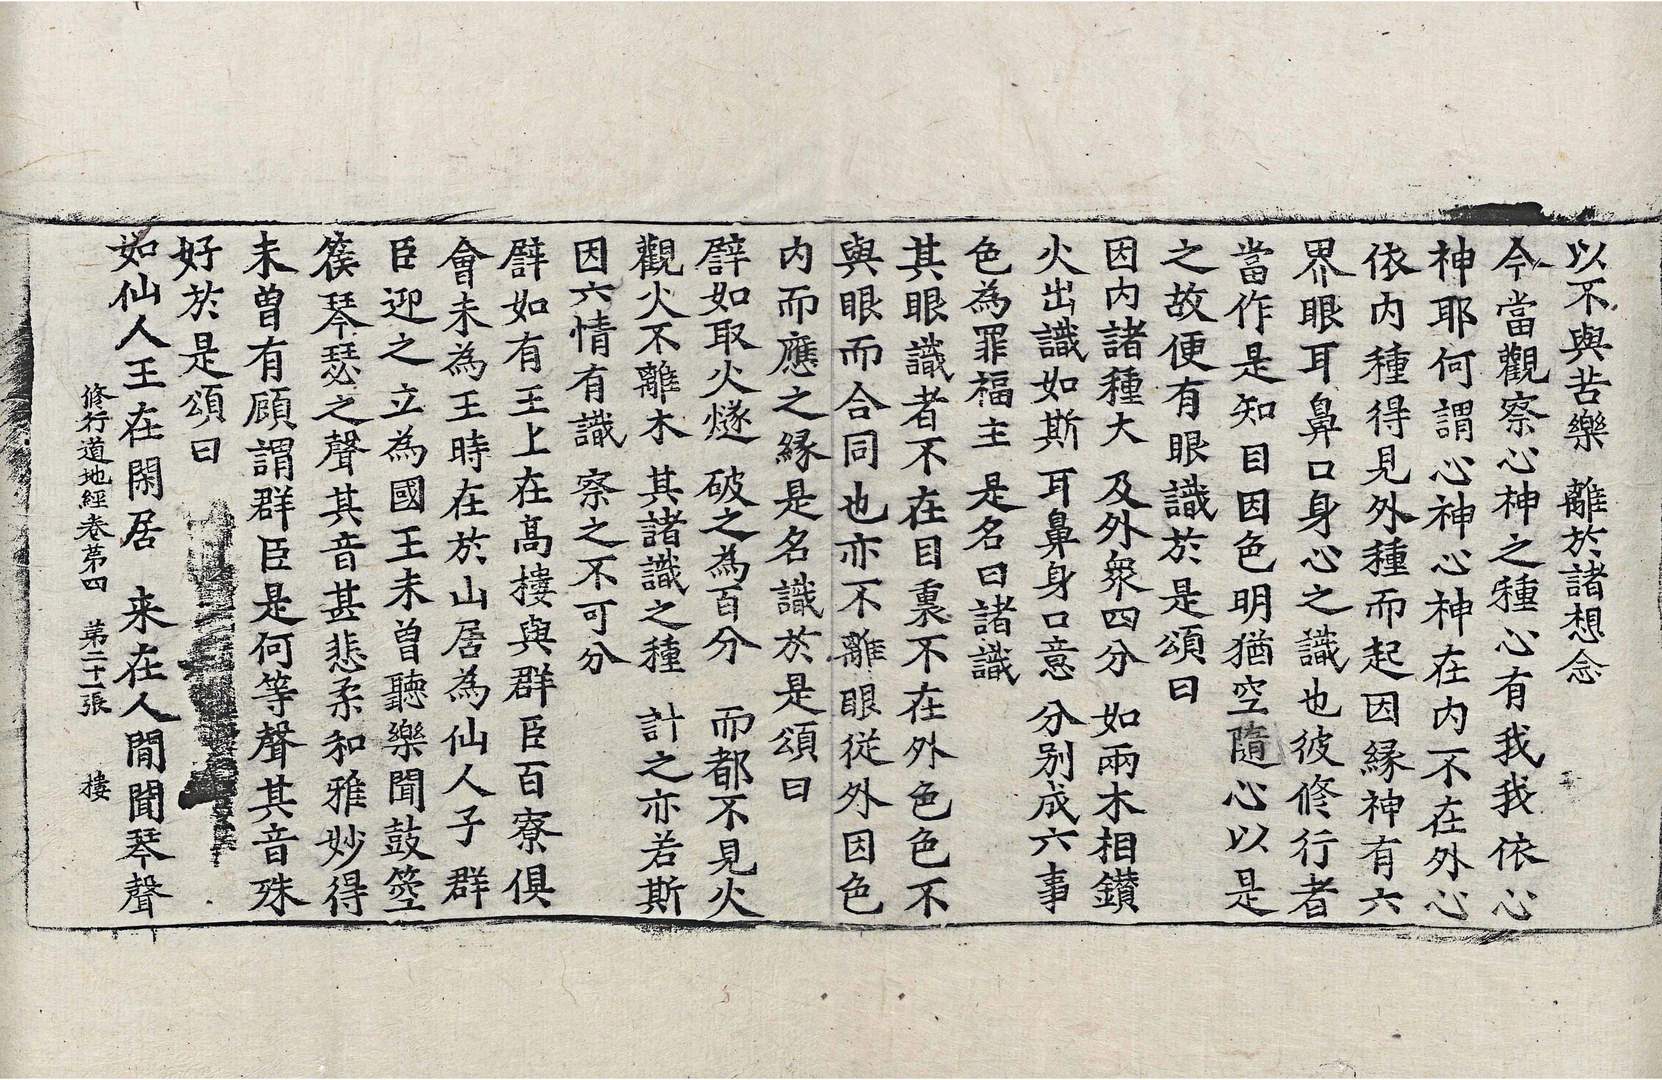 以不與苦樂　離於諸想念
今當觀察心神之種心有我我依心
神耶何謂心神心神在內不在外心
依內種得見外種而起因緣神有六
界眼耳鼻口身心之識也彼修行者
當作是知目因色明猶空隨心以是
之故便有眼識於是頌曰
因內諸種大　及外衆四分　如兩木相鑚
火出識如斯　耳鼻身口意　分别成六事
色為罪福主　是名曰諸識
其眼識者不在目裏不在外色色不
與眼而合同也亦不離眼從外因色
內而應之緣是名識於是頌曰
譬如取火燧　破之為百分　而都不見火
觀火不離木　其諸識之種　計之亦若斯
因六情有識　察之不可分
譬如有王上在高樓與群臣百寮俱
會未為王時在於山居為仙人子群
臣迎之立為國王未曾聽樂聞鼓箜
篌琴瑟之聲其音甚悲柔和雅妙得
未曾有顧謂群臣是何等聲其音殊
好於是頌曰
如仙人王在閑居　来在人間聞琴聲
修行道地經卷第四　第二十一張　樓